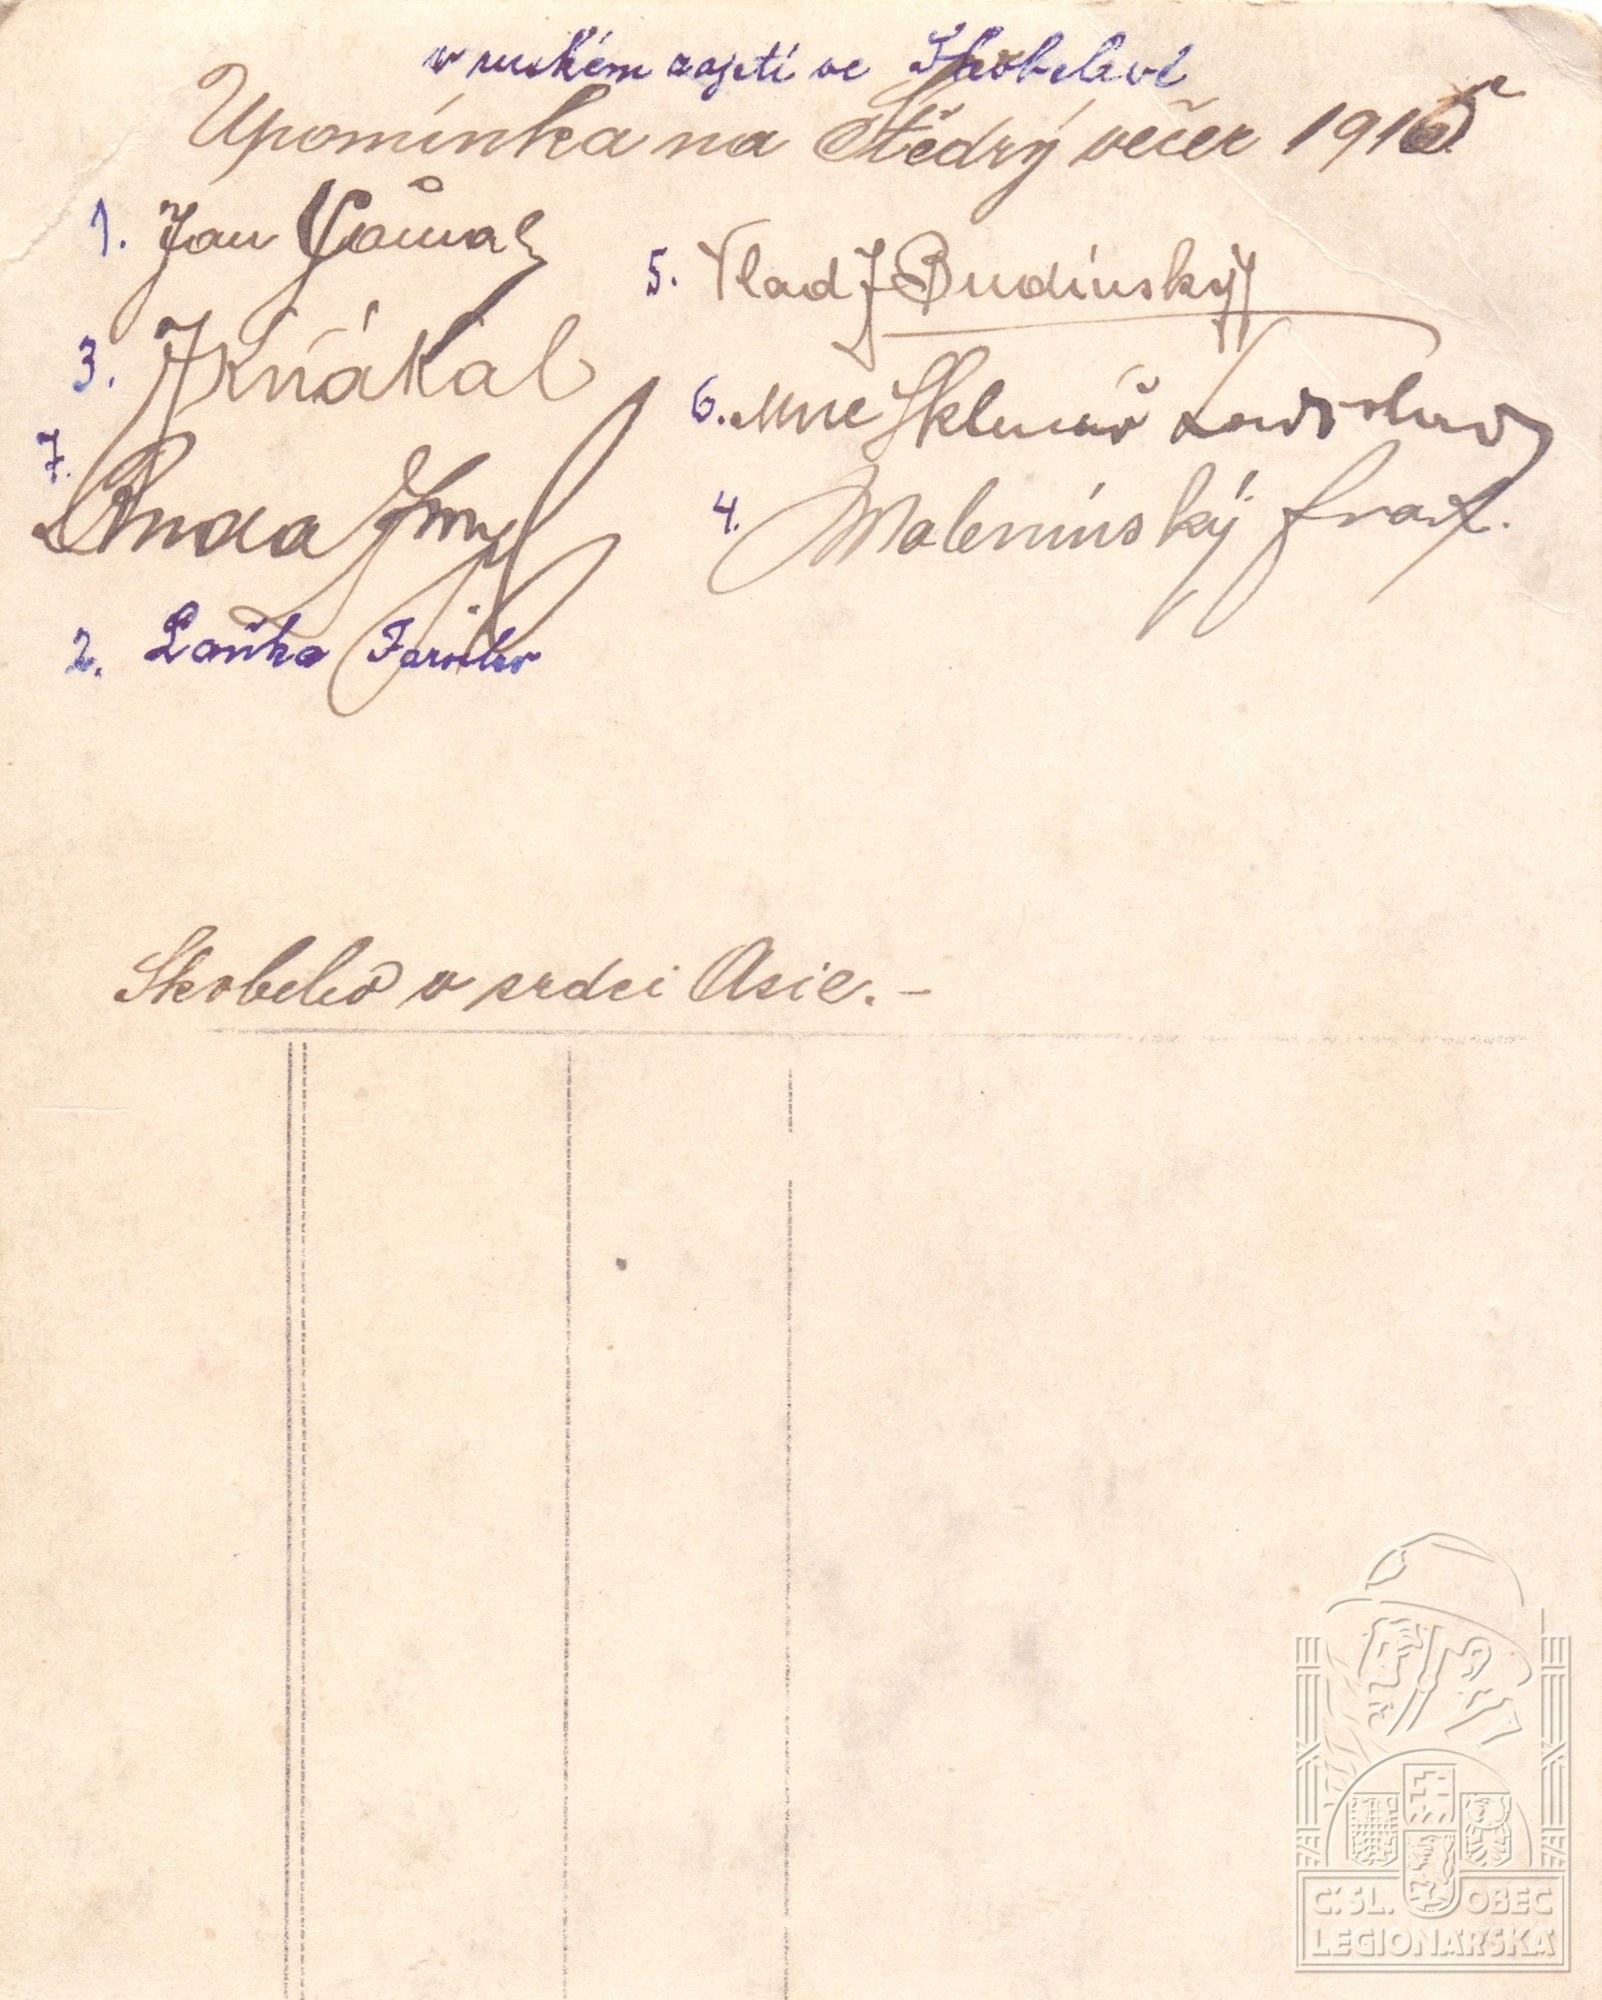 v ruském zajetí ve Skobelevě
Upomínka na Štědrý večer 1915
1. Jan
5. Vlad J Budínský
3. JKňákal
6. Sklenář Ladislav
7.
4. Malenínský Frant.
2. Laňka Jaroslav
Skobelev v srdci Asie.–
Č.SL. OBEC
LEGIONÁŘSKÁ